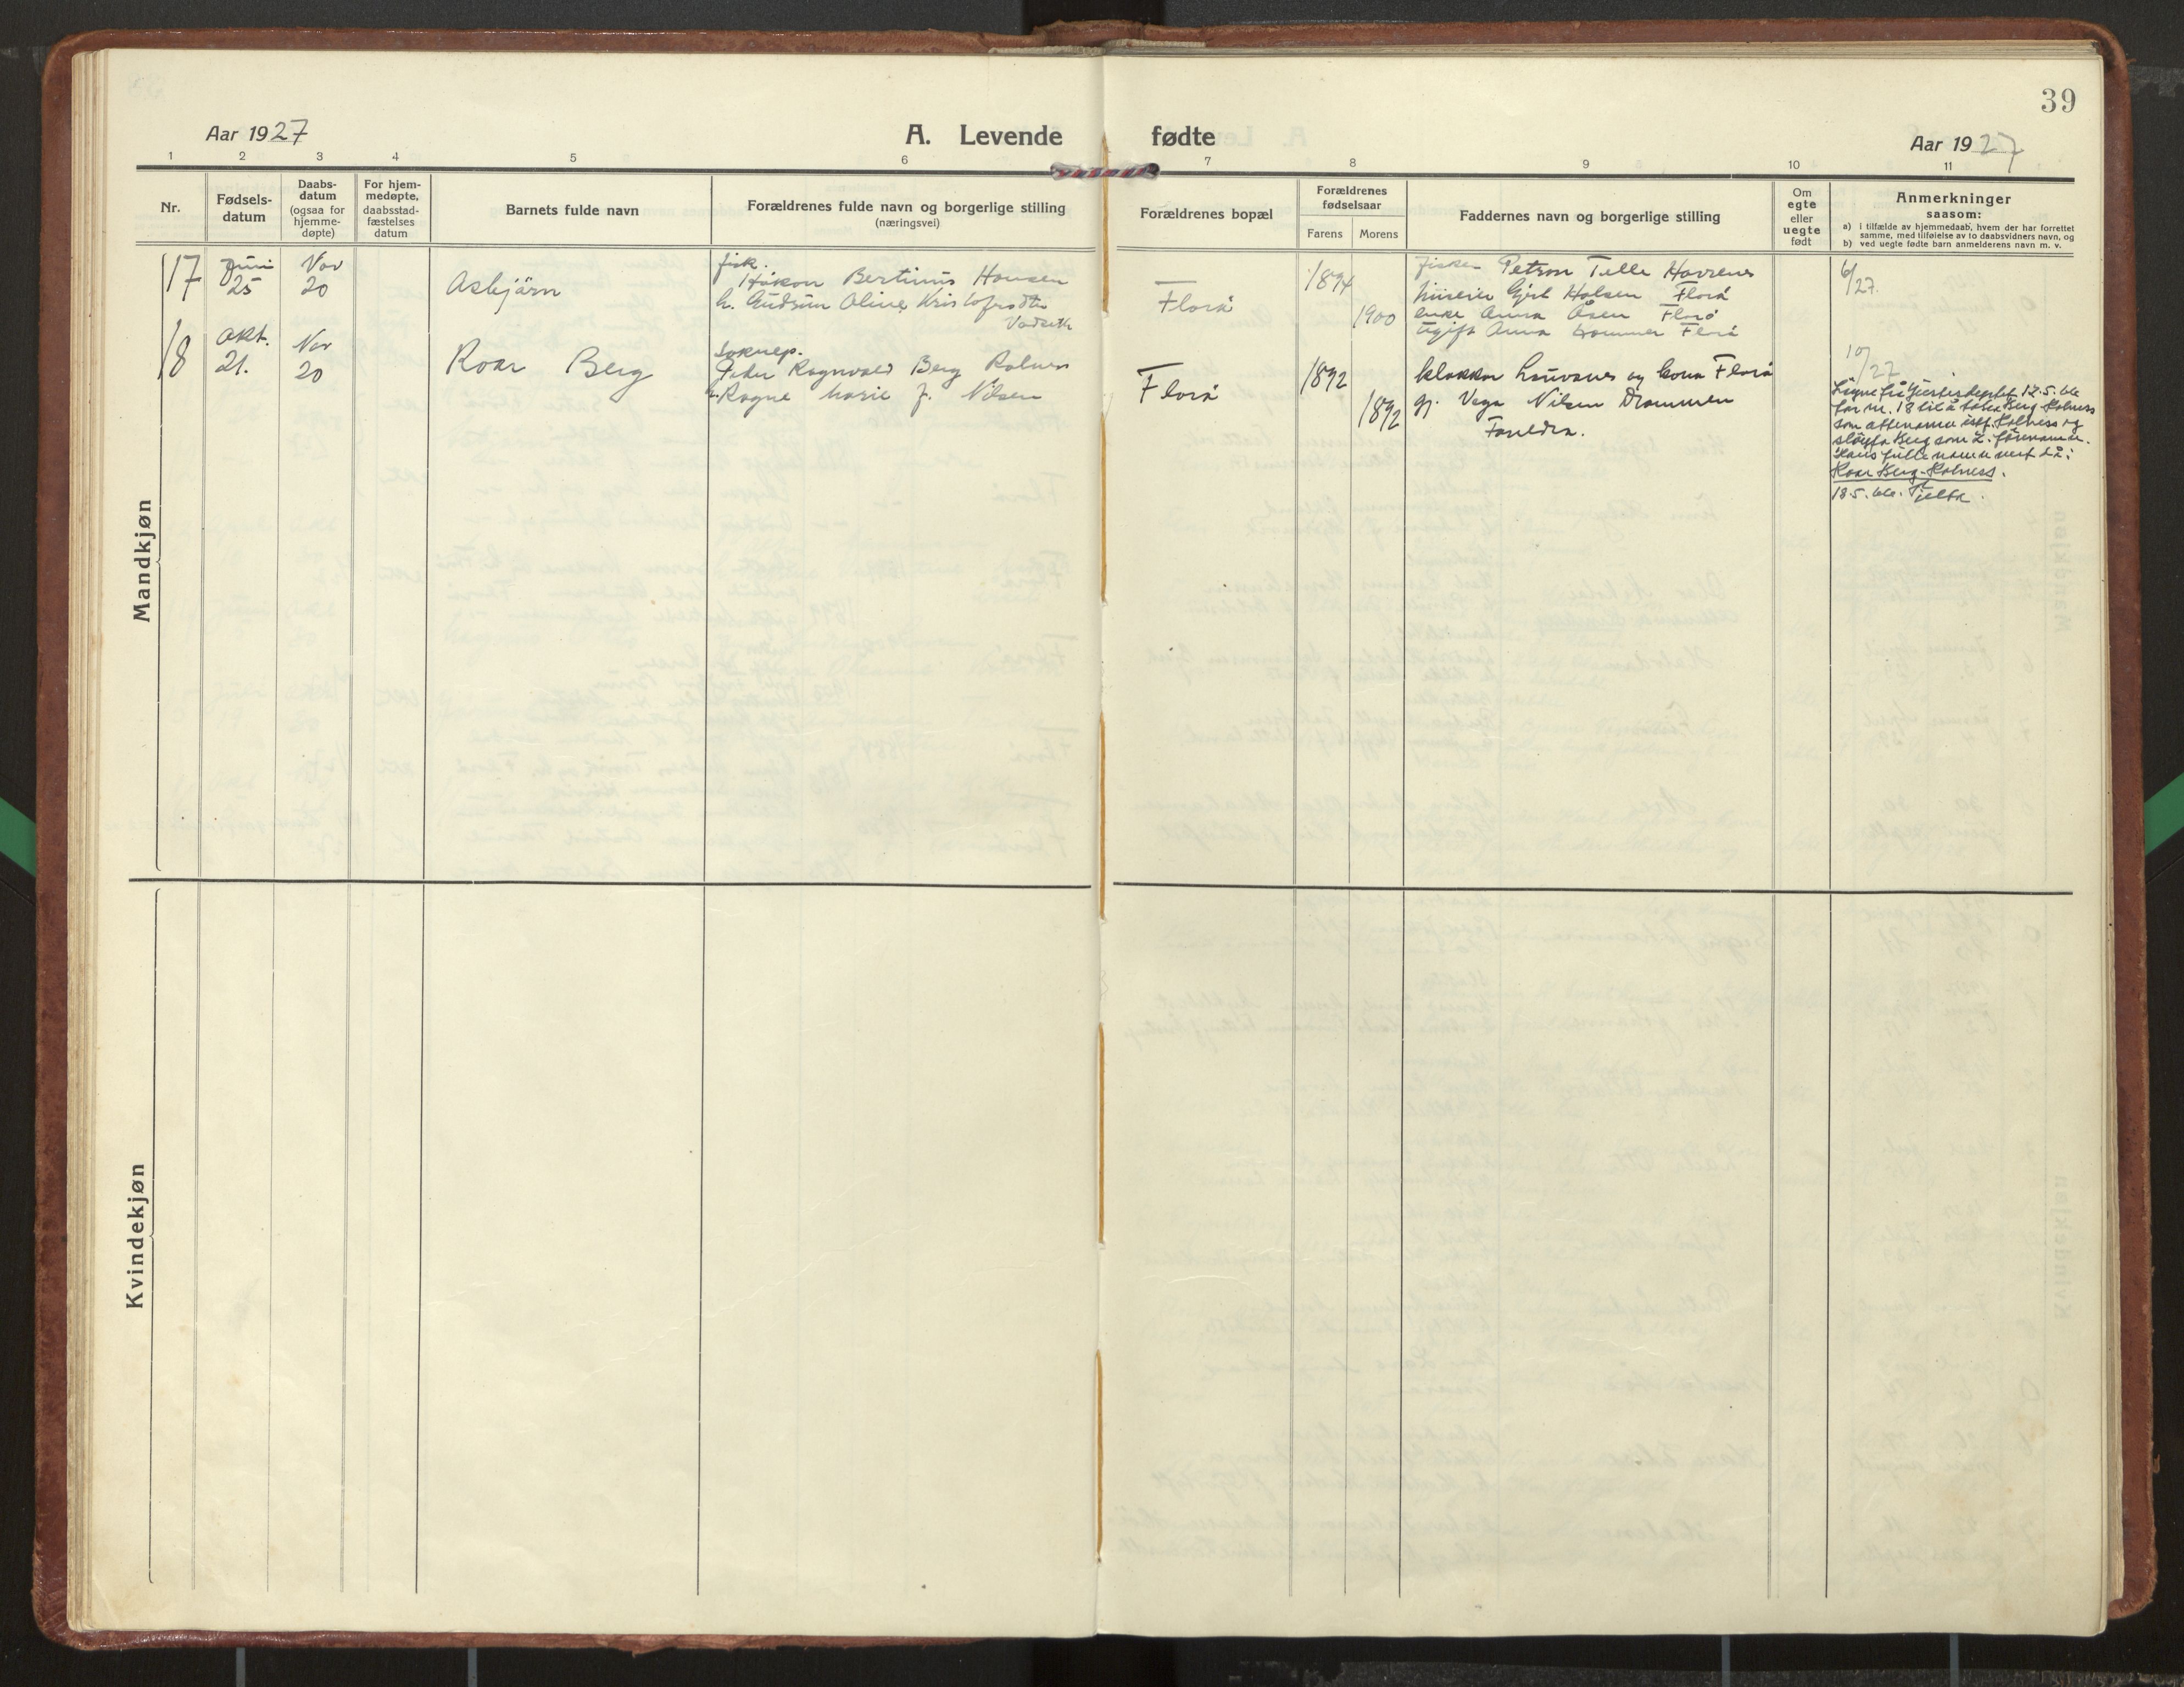 39
Aar 1927
A. Levende fødte
Aar 1927
1 2 3 4 5 6 7 8 9 10 11
Nr.
Fødsels-
datum
Daabs-
datum
(ogsaa for
hjemme-
døpte)
For hjem-
medøpte,
daabsstad-
fæstelses
datum
Barnets fulde navn
Forældrenes fulde navn og borgerlige stilling
(næringsvei)
Forældrenes bopæl
Forældrenes
fødselsaar
Farens Morens
Faddernes navn og borgerlige stilling
Om
egte
eller
uegte
født
Anmerkninger
saasom:
a) i tilfælde av hjemmedaab, hvem der har forrettet
samme, med tilføielse av to daabsvidners navn, og
b) ved uegte fødte barn anmelderens navn m. v.
Mandkjøn
17
Juni
25
Nov
20
Asbjärn
fisk.
Håkon Bertinus Hansen
h. Gudrun Oline Kristofersdtr
Vadseth
Florö
1894
1900
fisker Petron Telle Havrenes
huseier Gjert Halsen Florö
enke Anna Åsen Florö
ugift Anna Hammer Florö
6/27.
18
Okt.
21.
Nov
20
Roar Berg
soknep.
Peder Ragnvald Berg Rolness
h. Ragne Marie f. Nilsen
Florö
1892
1892
klokkar Lauvanes og kona Florö
gj. Vega Nilsen Drammen
Foreldra.
10/27
Løyve frå Justisdeptet 12.5.66
for nr. 18 til å taka Berg-Rolness
som attenamn istf. Rolness og
sløyfa Berg som 2. fornamn.
Hans fulle namn vert då:
Roar Berg-Rolness.
18.5.66.
Kvindekjøn